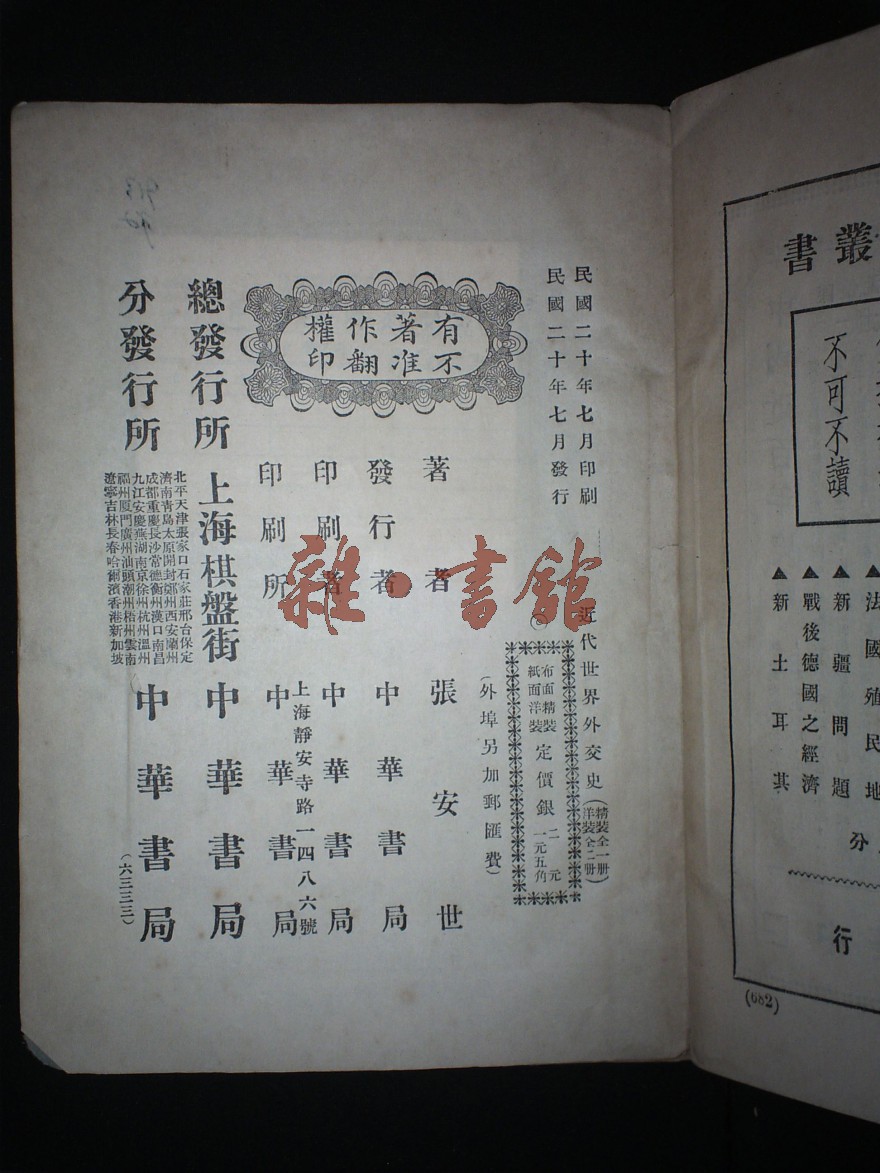 民國二十年七月印刷
民國二十年七月發行
近代世界外交史(精裝全一册
洋裝全二册)
布面精裝 定價銀 二元
紙面洋裝 一元五角
(外埠另加郵匯費)
有著作權
不准翻印
著者 張安世
發行者 中華書局
印刷者 中華書局
上海靜安寺路一四八六號
印刷所 中華書局
總發行所 上海棋盤街 中華書局
分發行所
北平天津張家口石家莊邢台保定
濟南青島太原開封鄭州西安蘭州
成都重慶長沙常德衡州漢口南昌
九江安慶蕪湖南京徐州杭州溫州
福州厦門廣州汕頭潮州梧州雲南
遼寧吉林長春哈爾濱香港新加坡
中華書局
(六三三三)
雜·書館
叢書
不可不讀
▲法國殖民地
▲新疆問題
▲戰後德國之經濟
▲新土耳其
分
行
(082)